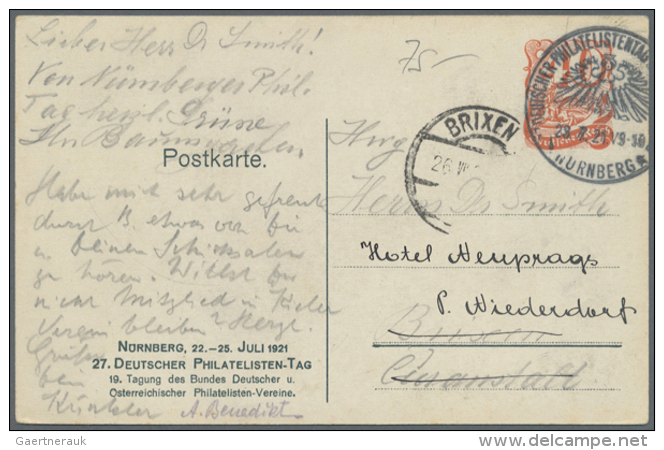 Lieber Herr Dr Smith!
75-
Von Nürnberger Phil.
Tag herzl. Grüsse
Ihr Baumgarten
DEUTSCHER PHILATELISTENTAG
23.7.21 9-10
NÜRNBERG
BRIXEN
26 VII
Postkarte.
Herrn Dr Smith
Habe mich sehr gefreut
etwas von
deinen Schicksalen
zu hören. Willst du
nicht Mitglied in Kieler
Verein bleiben? Herzl.
Grüsse
Hotel Neuprags
P. Niederdorf
Brixen
Curanstalt
NÜRNBERG, 22.–25. JULI 1921
27. DEUTSCHER PHILATELISTEN-TAG
19. Tagung des Bundes Deutscher u.
Österreichischer Philatelisten-Vereine.
A. Benedikt
Gaertnerauk
delcampe.net